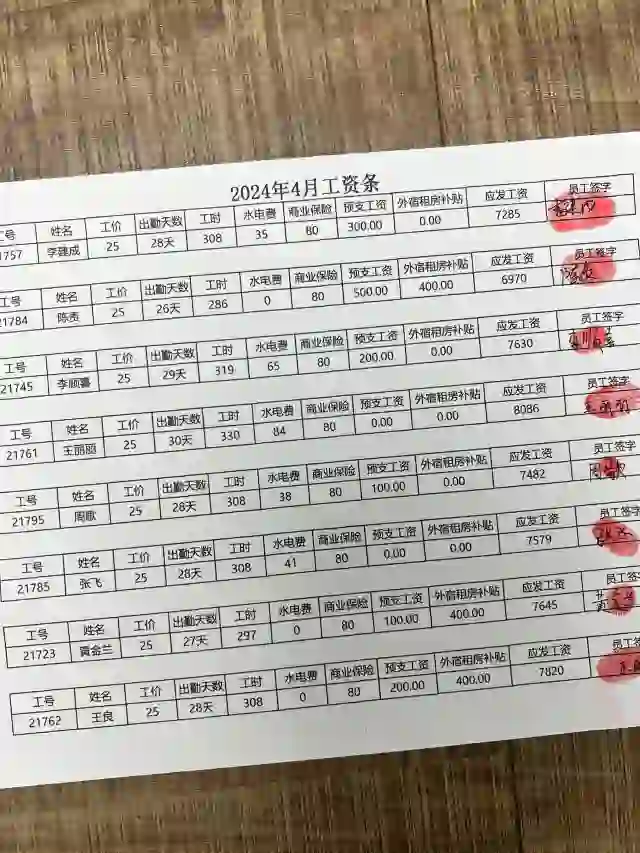 2024年4月工资条
工号 姓名 工价 出勤天数 工时 水电费 商业保险 预支工资 外宿租房补贴 应发工资 员工签字
1757 李建成 25 28天 308 35 80 300.00 0.00 7285
工号 姓名 工价 出勤天数 工时 水电费 商业保险 预支工资 外宿租房补贴 应发工资 员工签字
21784 陈责 25 26天 286 0 80 500.00 400.00 6970
工号 姓名 工价 出勤天数 工时 水电费 商业保险 预支工资 外宿租房补贴 应发工资 员工签字
21745 李顺喜 25 29天 319 65 80 200.00 0.00 7630
工号 姓名 工价 出勤天数 工时 水电费 商业保险 预支工资 外宿租房补贴 应发工资 员工签字
21761 王丽丽 25 30天 330 84 80 0.00 0.00 8086
工号 姓名 工价 出勤天数 工时 水电费 商业保险 预支工资 外宿租房补贴 应发工资 员工签字
21795 周歌 25 28天 308 38 80 100.00 0.00 7482 周歌
工号 姓名 工价 出勤天数 工时 水电费 商业保险 预支工资 外宿租房补贴 应发工资 员工签字
21785 张飞 25 28天 308 41 80 0.00 0.00 7579
工号 姓名 工价 出勤天数 工时 水电费 商业保险 预支工资 外宿租房补贴 应发工资 员工签
21723 黄金兰 25 27天 297 0 80 100.00 400.00 7645
工号 姓名 工价 出勤天数 工时 水电费 商业保险 预支工资 外宿租房补贴 应发工资 员工签
21762 王良 25 28天 308 0 80 200.00 400.00 7820